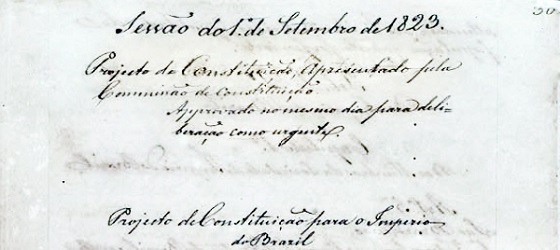 Sessão do 1º de Setembro de 1823.
Projecto de Constituição, Apresentado pela
Commissão de Constituição
Approvado no mesmo dia para deli-
beração como urgente.
Projecto de Constituição para o Imperio
do Brazil